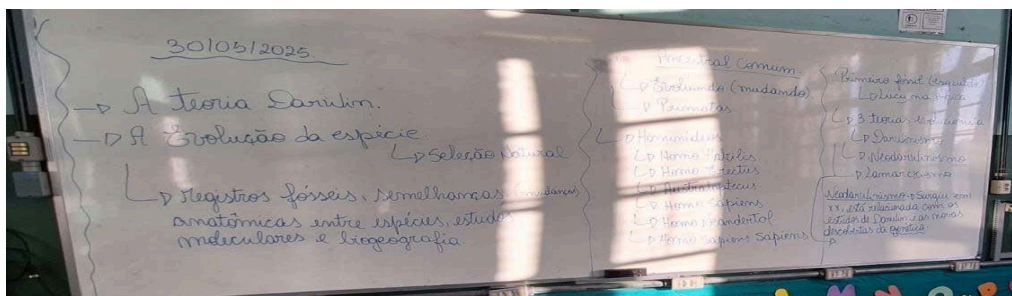 30/05/2025
A teoria Darwin.
A Evolução da espécie.
Seleção Natural
Registros fósseis, semelhanças (mudanças)
anatômicas entre espécies, estudos
moleculares e biogeografia.
Ancestral Comum.
Evoluindo (mudando)
Primatas
Hominídeos
Homo Habilis
Homo Erectus
Homo Sapiens
Homo
Homo Sapiens Sapiens
Primeiro fóssil (esqueleto)
Lucy na
3 teorias
Darwinismo
Neodarwinismo
Lamarckismo
Neodarwinismo → Surgiu
está relacionada com os
estudos de Darwin e as novas
descobertas da genética.
M N